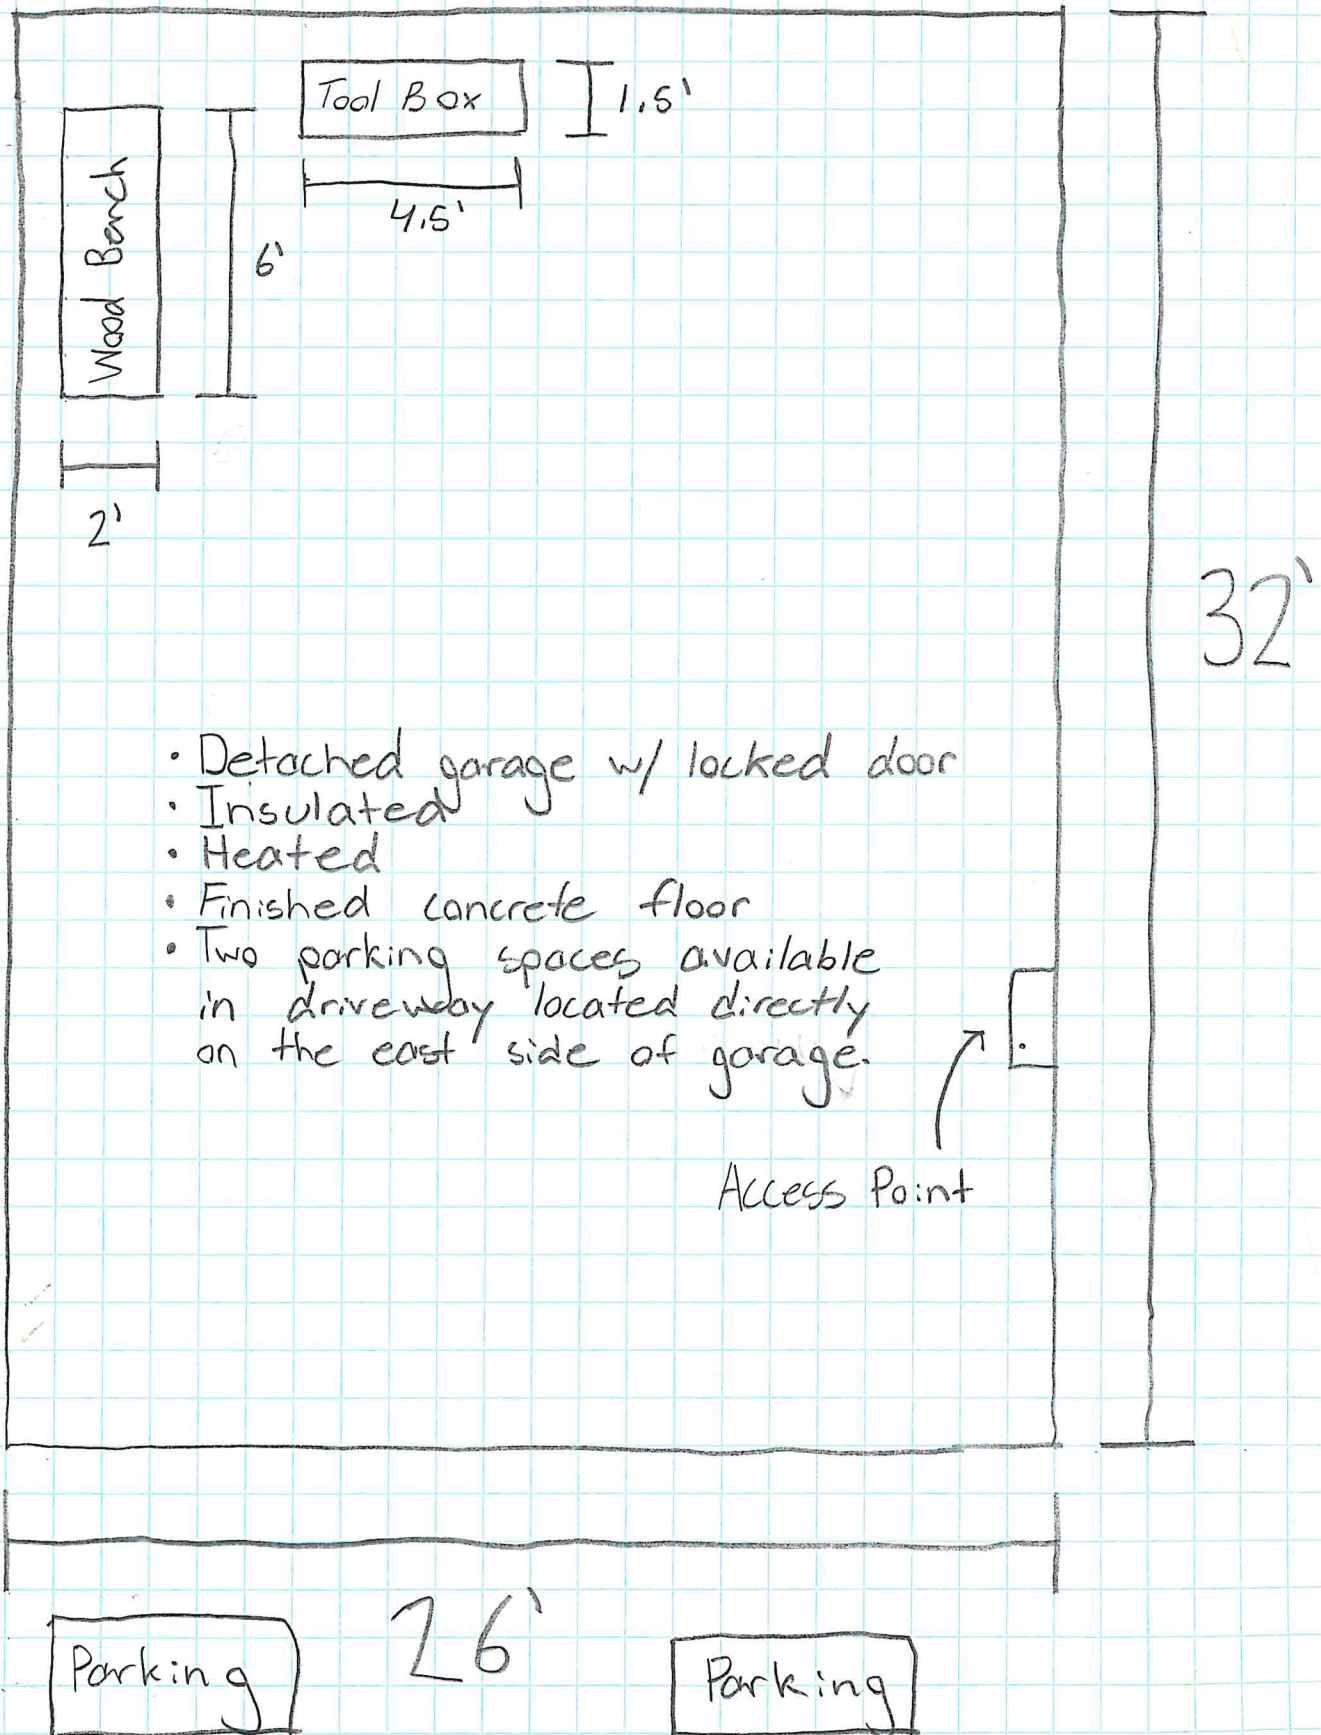 Tool Box
1.5'
4.5'
Wood Bench
6'
2'
32'
• Detached garage w/ locked door
• Insulated
• Heated
• Finished concrete floor
• Two parking spaces available
in driveway located directly
on the east side of garage.
Access Point
26'
Parking
Parking